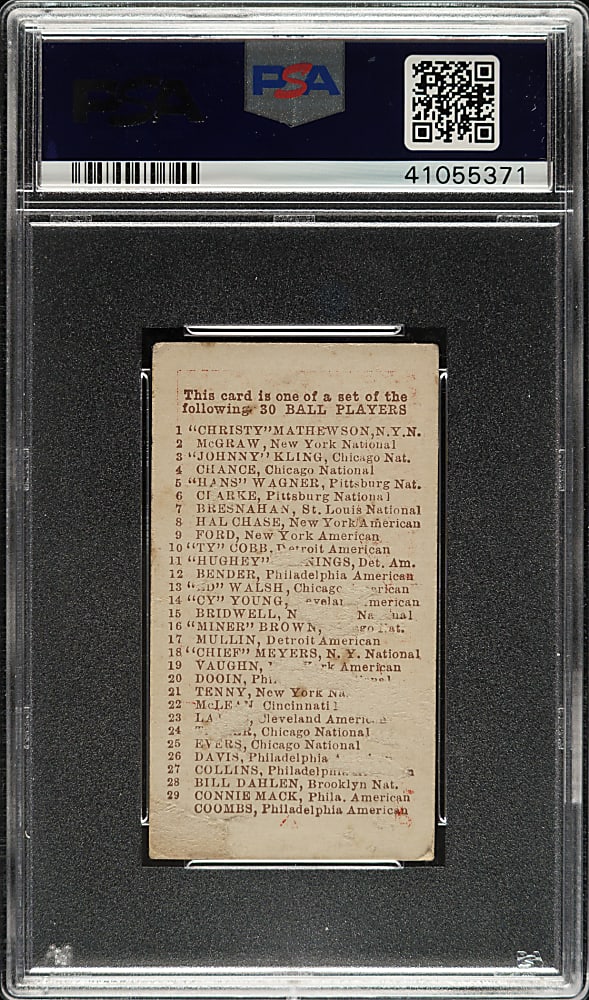 PSA
PSA
41055371
This card is one of a set of the
following 30 BALL PLAYERS
1 "CHRISTY" MATHEWSON, N.Y.N.
2 McGRAW, New York National
3 "JOHNNY" KLING, Chicago Nat.
4 CHANCE, Chicago National
5 "HANS" WAGNER, Pittsburg Nat.
6 CLARKE, Pittsburg National
7 BRESNAHAN, St. Louis National
8 HAL CHASE, New York American
9 FORD, New York American
10 "TY" COBB, Detroit American
11 "HUGHEY" NINGS, Det. Am.
12 BENDER, Philadelphia American
13 WALSH, Chicago
14 "CY" YOUNG,
15 BRIDWELL, N
16 "MINER" BROWN, Nat.
17 MULLIN, Detroit American
18 "CHIEF" MEYERS, N. Y. National
19 VAUGHN, American
20 DOOIN,
21 TENNY, New York Na
22 McLEAN Cincinnati
23 Cleveland America
24 Chicago National
25 EVERS, Chicago National
26 DAVIS, Philadelphia
27 COLLINS, Philadelphia
28 BILL DAHLEN, Brooklyn Nat.
29 CONNIE MACK, Phila. American
COOMBS, Philadelphia American